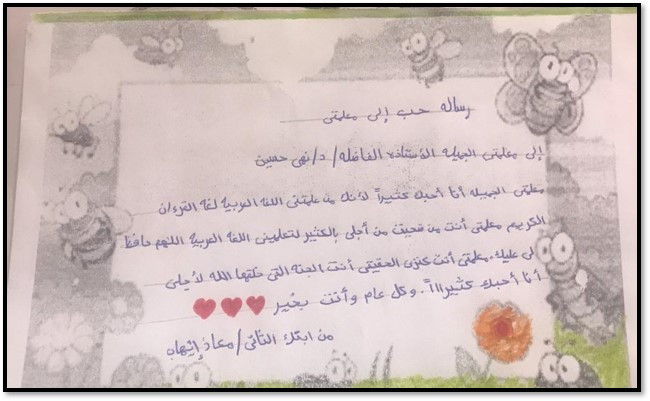 رساله حب إلى معلمتى
إلى معلمتى الجميله الأستاذه الفاضله/ د/نهى حسين
معلمتى الجميله أنا أحبك كثيراً لأنك من علمتنى اللغه العربيه لغة القرءان
الكريم معلمتى أنت من ضحيت من أجلى بالكثير لتعلمينى اللغة العربية اللهم حافظ
لى عليك. معلمتى أنت كنزى الحقيقى أنت الجنة التى خلقها الله لأجلى
أنا أحبك كثيرااااً. وكل عام وأنت بخير
من ابنك الثانى/ معاذ إيهاب